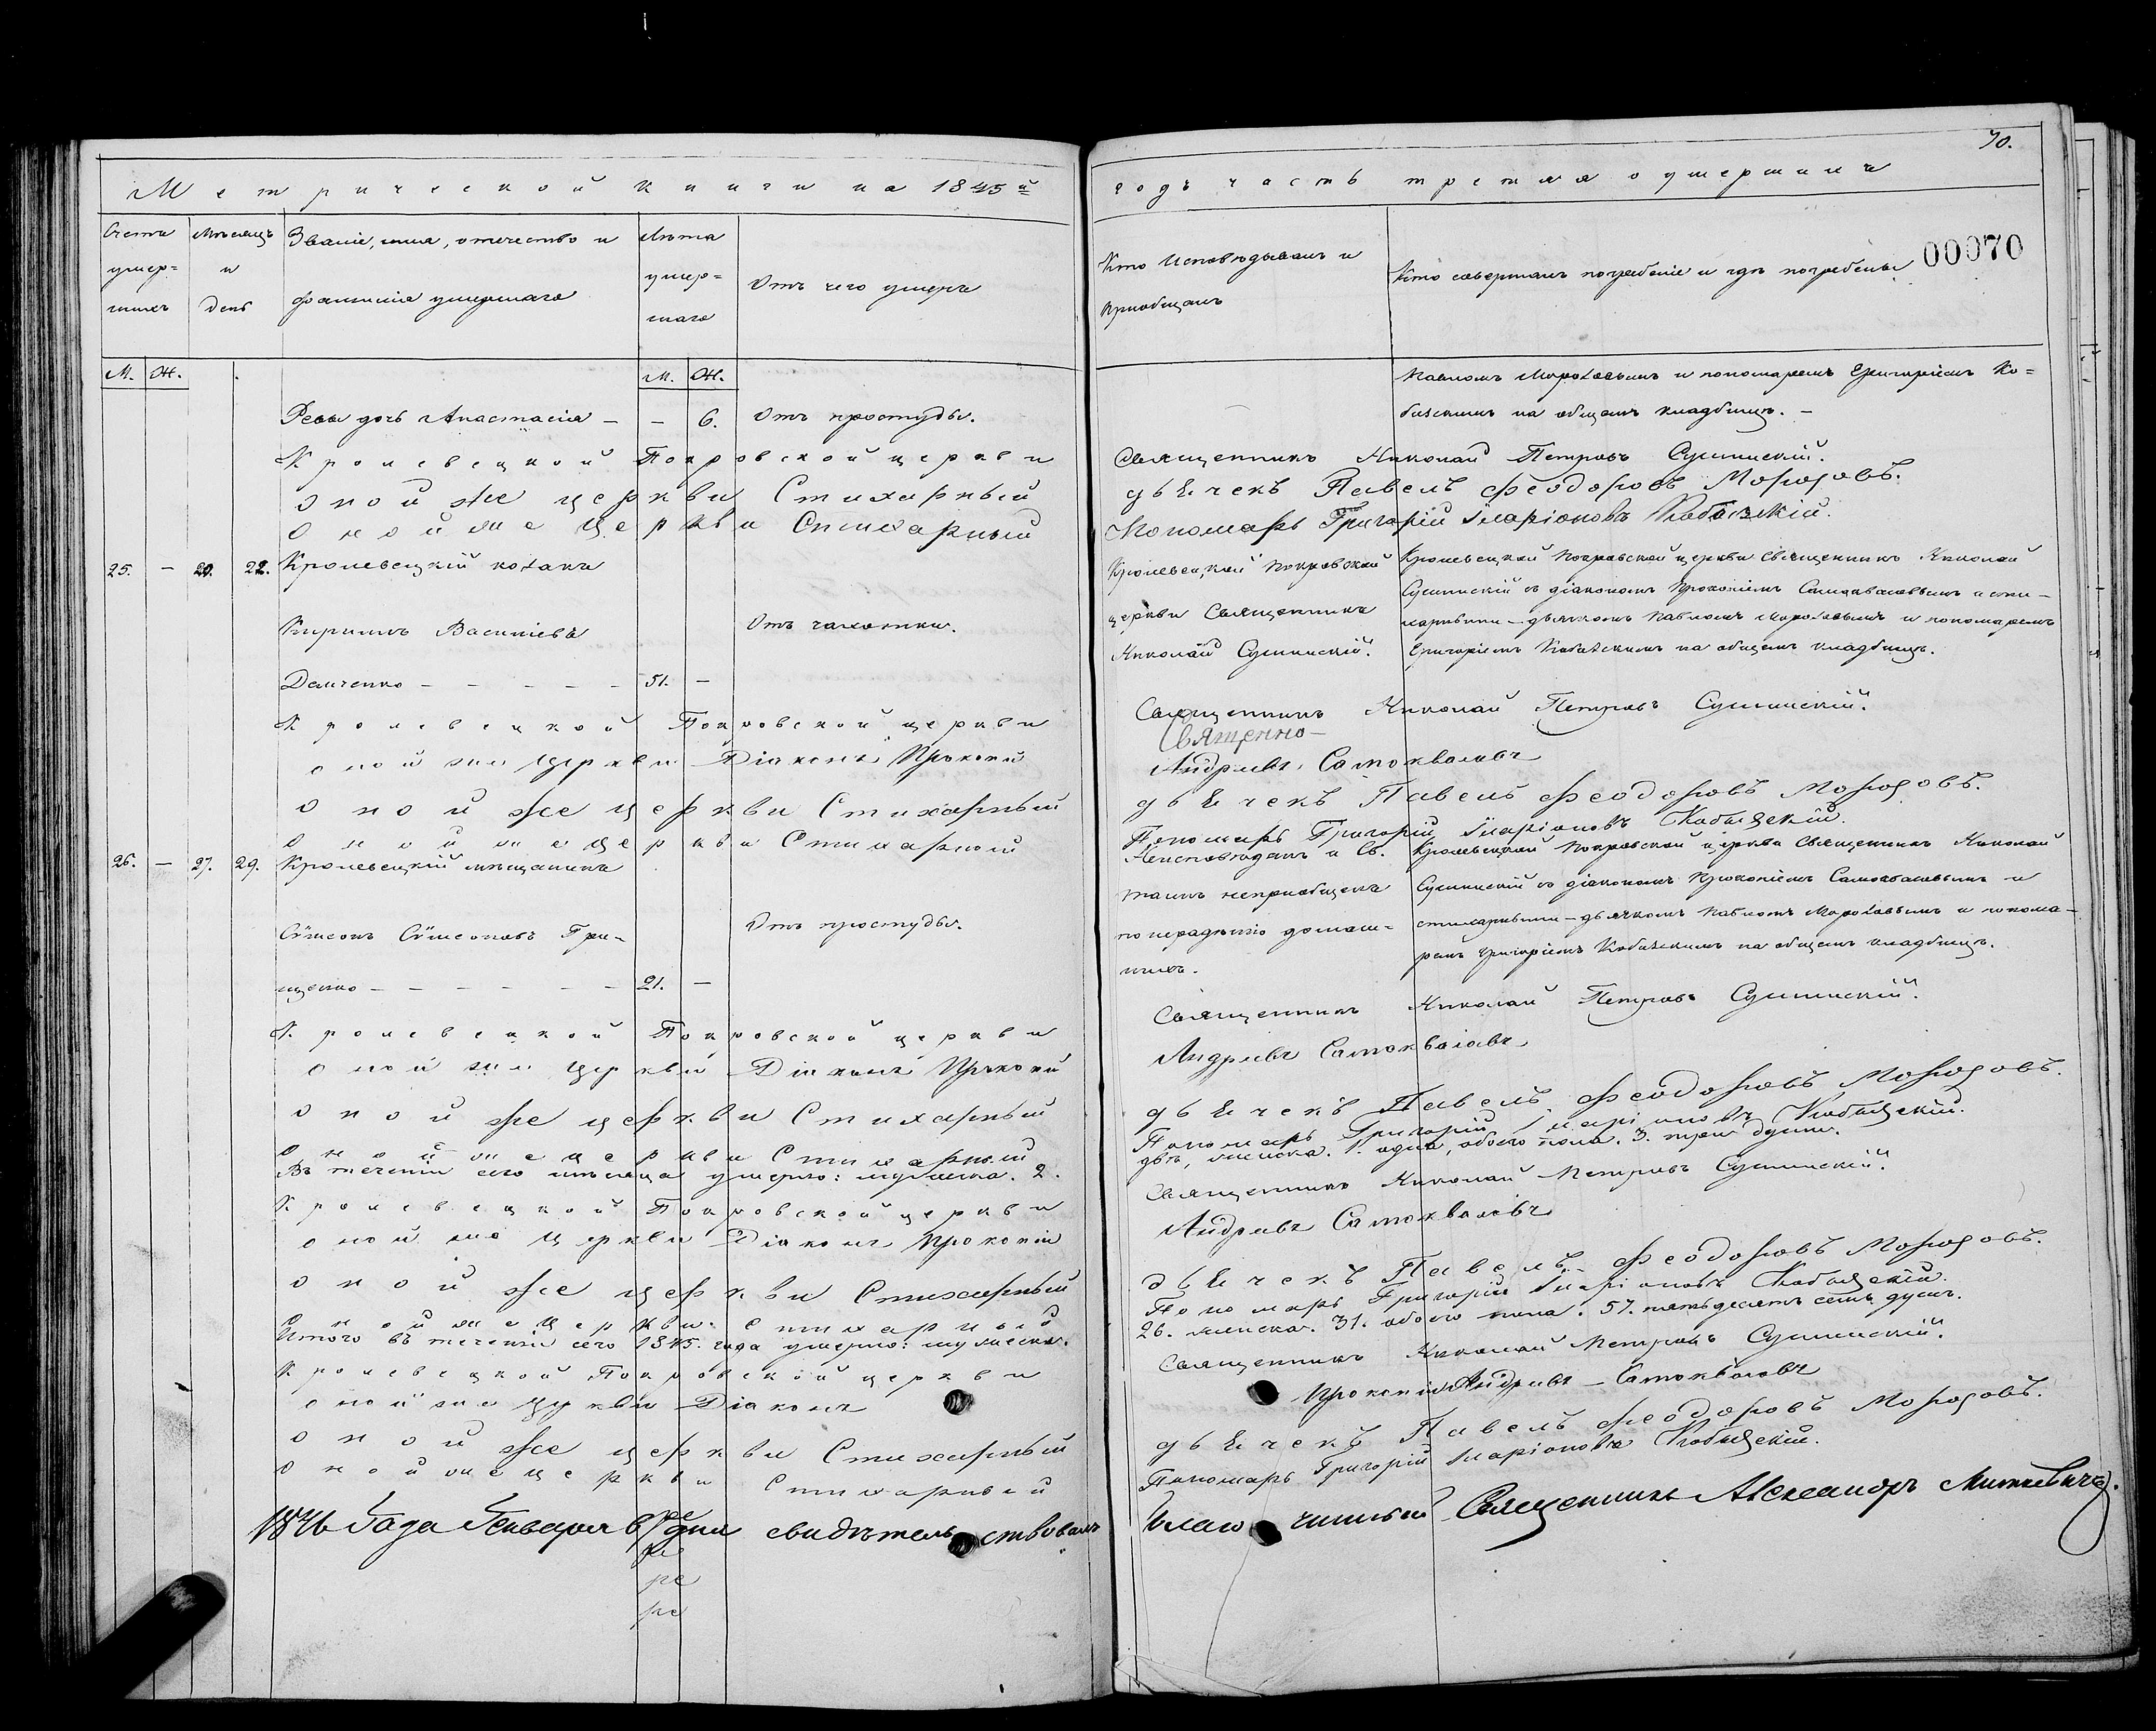 70.
Метрической книги на 1845й
годъ часть третяя о умершихъ
Счетъ умер=шихъ
Мѣсяцъ и день
Званіе, имя, отечество и фамилія умершаго
Лѣта умер=шаго
Отъ чего умеръ
Кто исповѣдывалъ и приобщалъ
Кто совершалъ погребеніе и гдѣ погребены
00070
М. Ж.
М. Ж.
дочь Анастасія — — 6. Отъ простуды.
Павломъ Морозовымъ и пономаремъ Григоріемъ Ко=
бизскимъ на общемъ кладбищѣ. —
Кролевецкой Покровской церкви Священникъ Николай Петровъ Сушинскій.
оной же церкви Стихарный дьячекъ Павелъ Феодоровъ Морозовъ.
оной же церкви Стихарный Пономарь Григорій Иларіоновъ Кобизскій.
25. — 20. 22. Кролевецкій козакъ
Кирилъ Василіевъ
Демченко — — — — — 51. —
Отъ чахотки.
Кролевецкой Покровской
церкви Священникъ
Николай Сушинскій.
Кролевецкой Покровской церкви Священникъ Николай
Сушинскій съ діакономъ Прокопіемъ Самокваловымъ и сти-
харными — дьячкомъ Павломъ Морозовымъ и пономаремъ
Григоріемъ Кобизскимъ на общемъ кладбищѣ.
Кролевецкой Покровской церкви Священникъ Николай Петровъ Сушинскій.
Священно-
оной же церкви Діаконъ Прокопій Андреевъ Самокваловъ
оной же церкви Стихарный дьячекъ Павелъ Феодоровъ Морозовъ.
оной же церкви Стихарный Пономарь Григорій Иларіоновъ Кобызскій.
26. — 27. 29. Кролевецкій мѣщанинъ
Сѵмеонъ Сѵмеоновъ Гри-
щенко — — — — — — 21. —
Отъ простуды.
Неисповѣданъ и Св.
таинъ неприобщенъ
по нерадѣнію домаш=
нихъ.
Кролевецкой Покровской церкви Священникъ Николай
Сушинскій съ діакономъ Прокопіемъ Самокваловымъ и
стихарными — дьячкомъ Павломъ Морозовымъ и понома-
ремъ Григоріемъ Кобизскимъ на общемъ кладбищѣ.
Кролевецкой Покровской церкви Священникъ Николай Петровъ Сушинскій.
оной же церкви Діаконъ Прокопій Андреевъ Самокваловъ
оной же церкви Стихарный дьячекъ Павелъ Феодоровъ Морозовъ.
оной же церкви Стихарный Пономарь Григорій Иларіоновъ Кобызскій.
Въ теченіи сего мѣсяца умерло: мужеска. 2. двѣ, женска. 1. одна, обоего пола. 3. три души.
Кролевецкой Покровской церкви Священникъ Николай Петровъ Сушинскій.
оной же церкви Діаконъ Прокопій Андреевъ Самокваловъ
оной же церкви Стихарный дьячекъ Павелъ Феодоровъ Морозовъ.
оной же церкви Стихарный Пономарь Григорій Иларіоновъ Кобызскій.
Итого въ теченіи сего 1845. года умерло: мужеска. 26. женска. 31. обоего пола. 57. пятьдесятъ семь душъ.
Кролевецкой Покровской церкви Священникъ Николай Петровъ Сушинскій.
оной же церкви Діаконъ Прокопій Андреевъ — Самокваловъ
оной же церкви Стихарный дьячекъ Павелъ Феодоровъ Морозовъ.
оной же церкви Стихарный Пономарь Григорій Иларіоновъ Кобызскій.
1846 Года Генваря дня свидѣтельствовалъ Благочинный Священникъ Александръ Миткевичъ.
ре
ре
ре